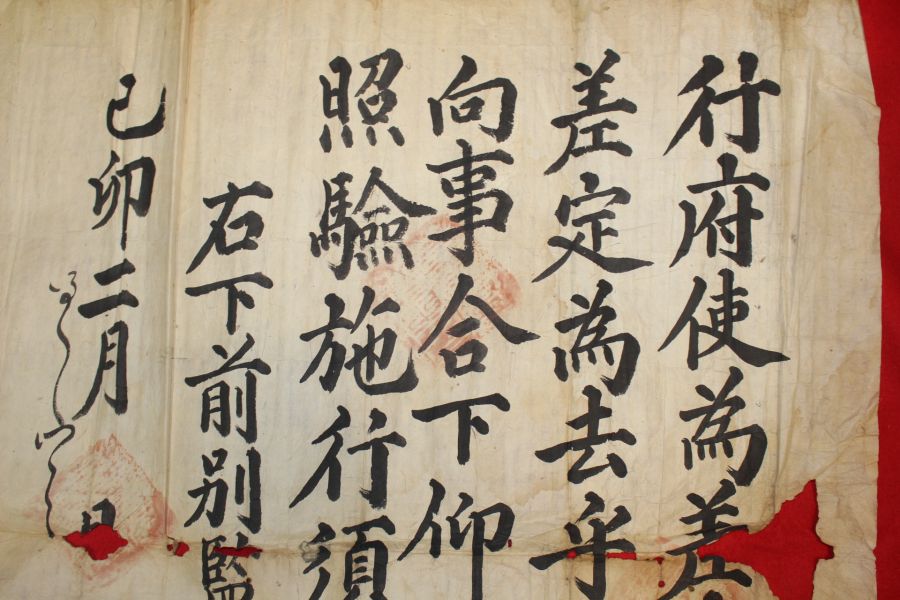 行府使為差
差定為去乎
向事合下仰
照驗施行須
右下前別監
己卯二月 日